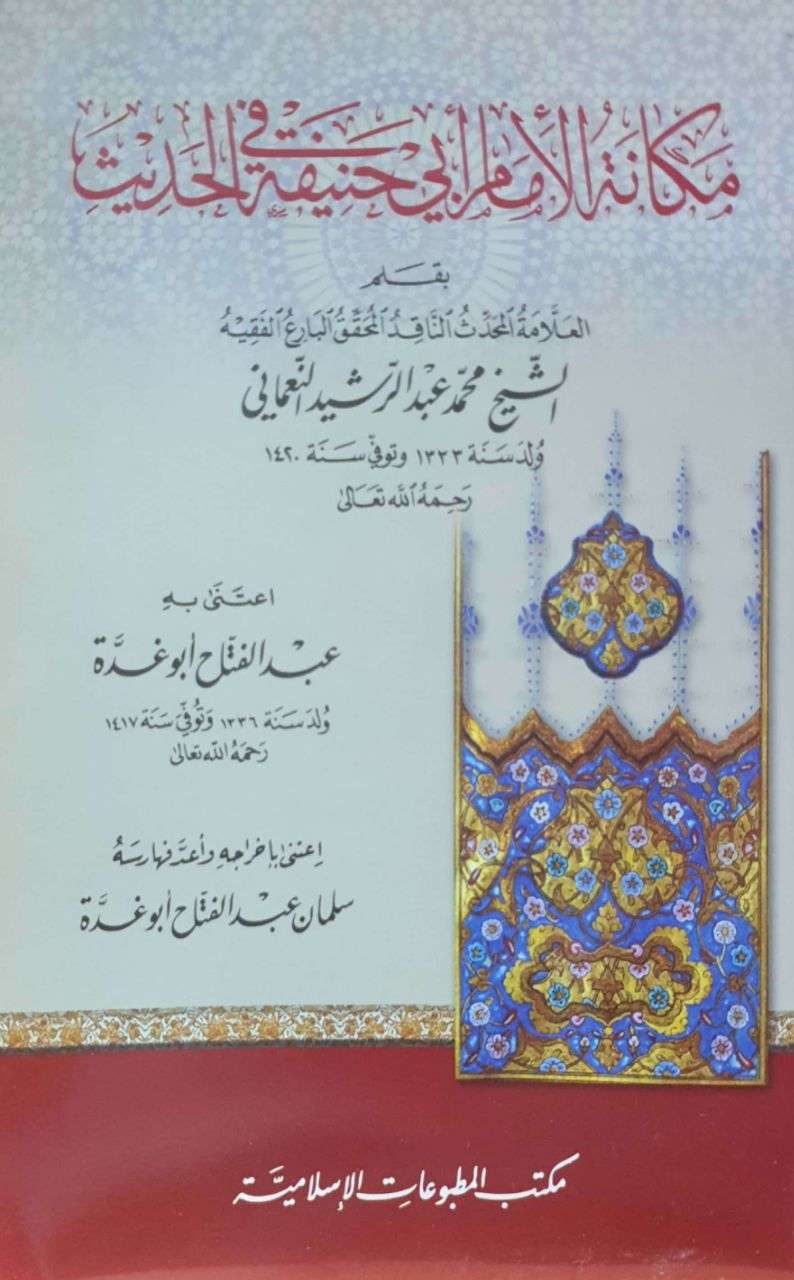 مَكَانَةُ الإِمَامِ أَبِي حَنِيفَةَ فِي الحَدِيثِ
بقلم
العَلَّامَةُ المُحَدِّثُ النَّاقِدُ المُحَقِّقُ البَارِعُ الفَقِيهُ
الشيخ محمّد عبد الرّشيد النّعماني
وُلِدَ سَنَة ١٣٣٣ وتوفّي سَنَة ١٤٢٠
رَحِمَهُ اللهُ تَعَالىٰ
اعتَنىٰ بِهِ
عبد الفتّاح أبو غدّة
وُلِدَ سَنَة ١٣٣٦ وَتُوفّيَ سَنَة ١٤١٧
رَحمَهُ اللّه تعَالىٰ
اعتنىٰ بإخراجِهِ وأعدَّ فهارسَهُ
سلمان عبد الفتّاح أبو غدّة
مكتب المطبوعات الإسلاميَّة